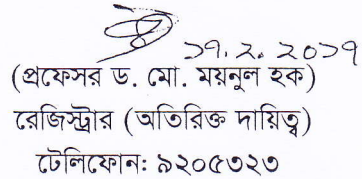 ১৭.২.২০১৭
(প্রফেসর ড. মো. ময়নুল হক)
রেজিস্ট্রার (অতিরিক্ত দায়িত্ব)
টেলিফোন: ৯২০৫৩২৩